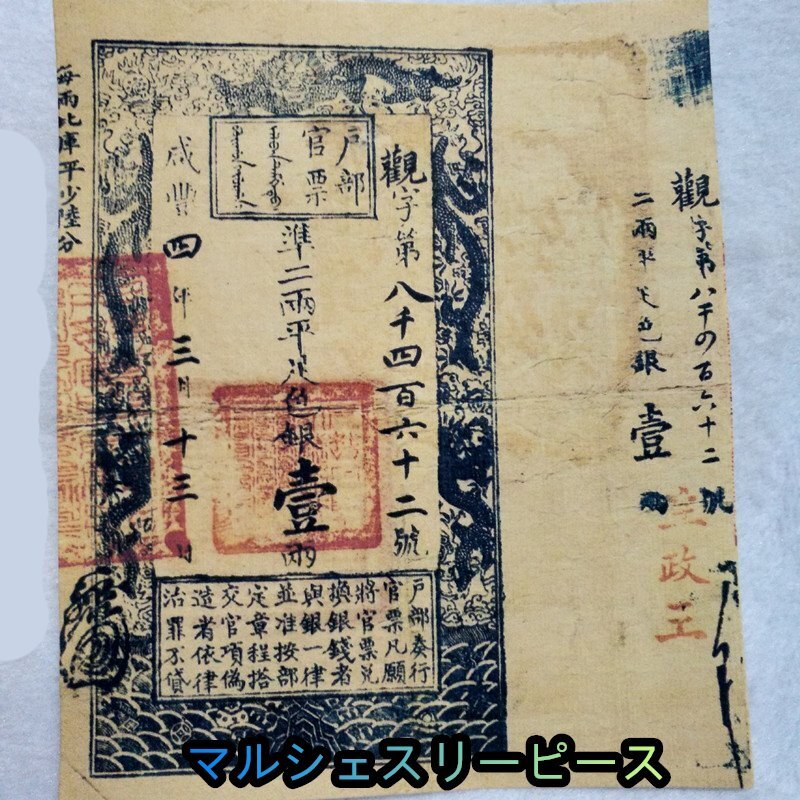 觀字第八千四百六十二號
二兩平足色銀壹兩
宝政工
户部官票
觀字第八千四百六十二號
準二兩平足色銀壹兩
咸豐四年三月十三日
每兩比庫平少陸分
户部奏行
官票凡願
將官票兑
換銀錢者
與銀一律
並准按部
定章程搭
交官項偽
造者依律
治罪不貸
マルシェスリーピース